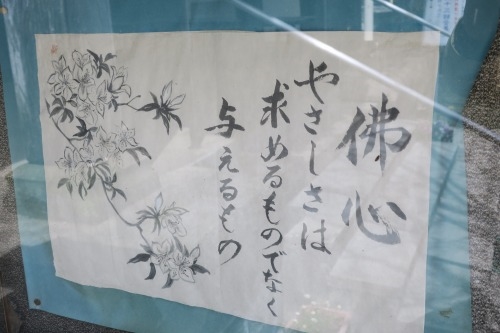 佛心
やさしさは
求めるものでなく
与えるもの